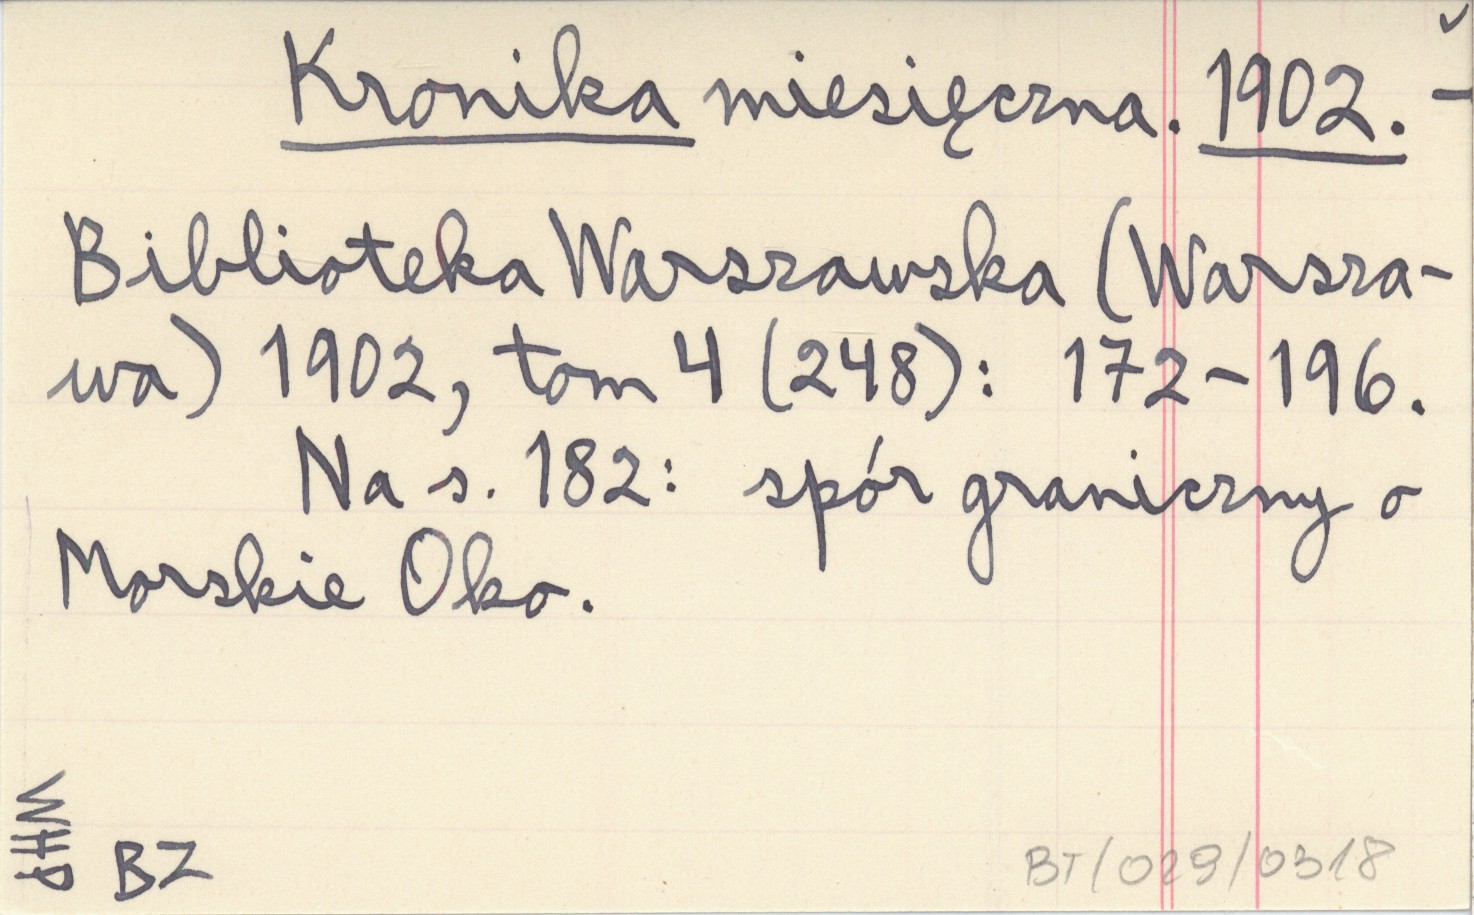 Kronika miesięczna. 1902. –
Biblioteka Warszawska (Warsza-
wa) 1902, tom 4 (248): 172–196.
Na s. 182: spór graniczny o
Morskie Oko.
WHP
BZ
BT/029/0318